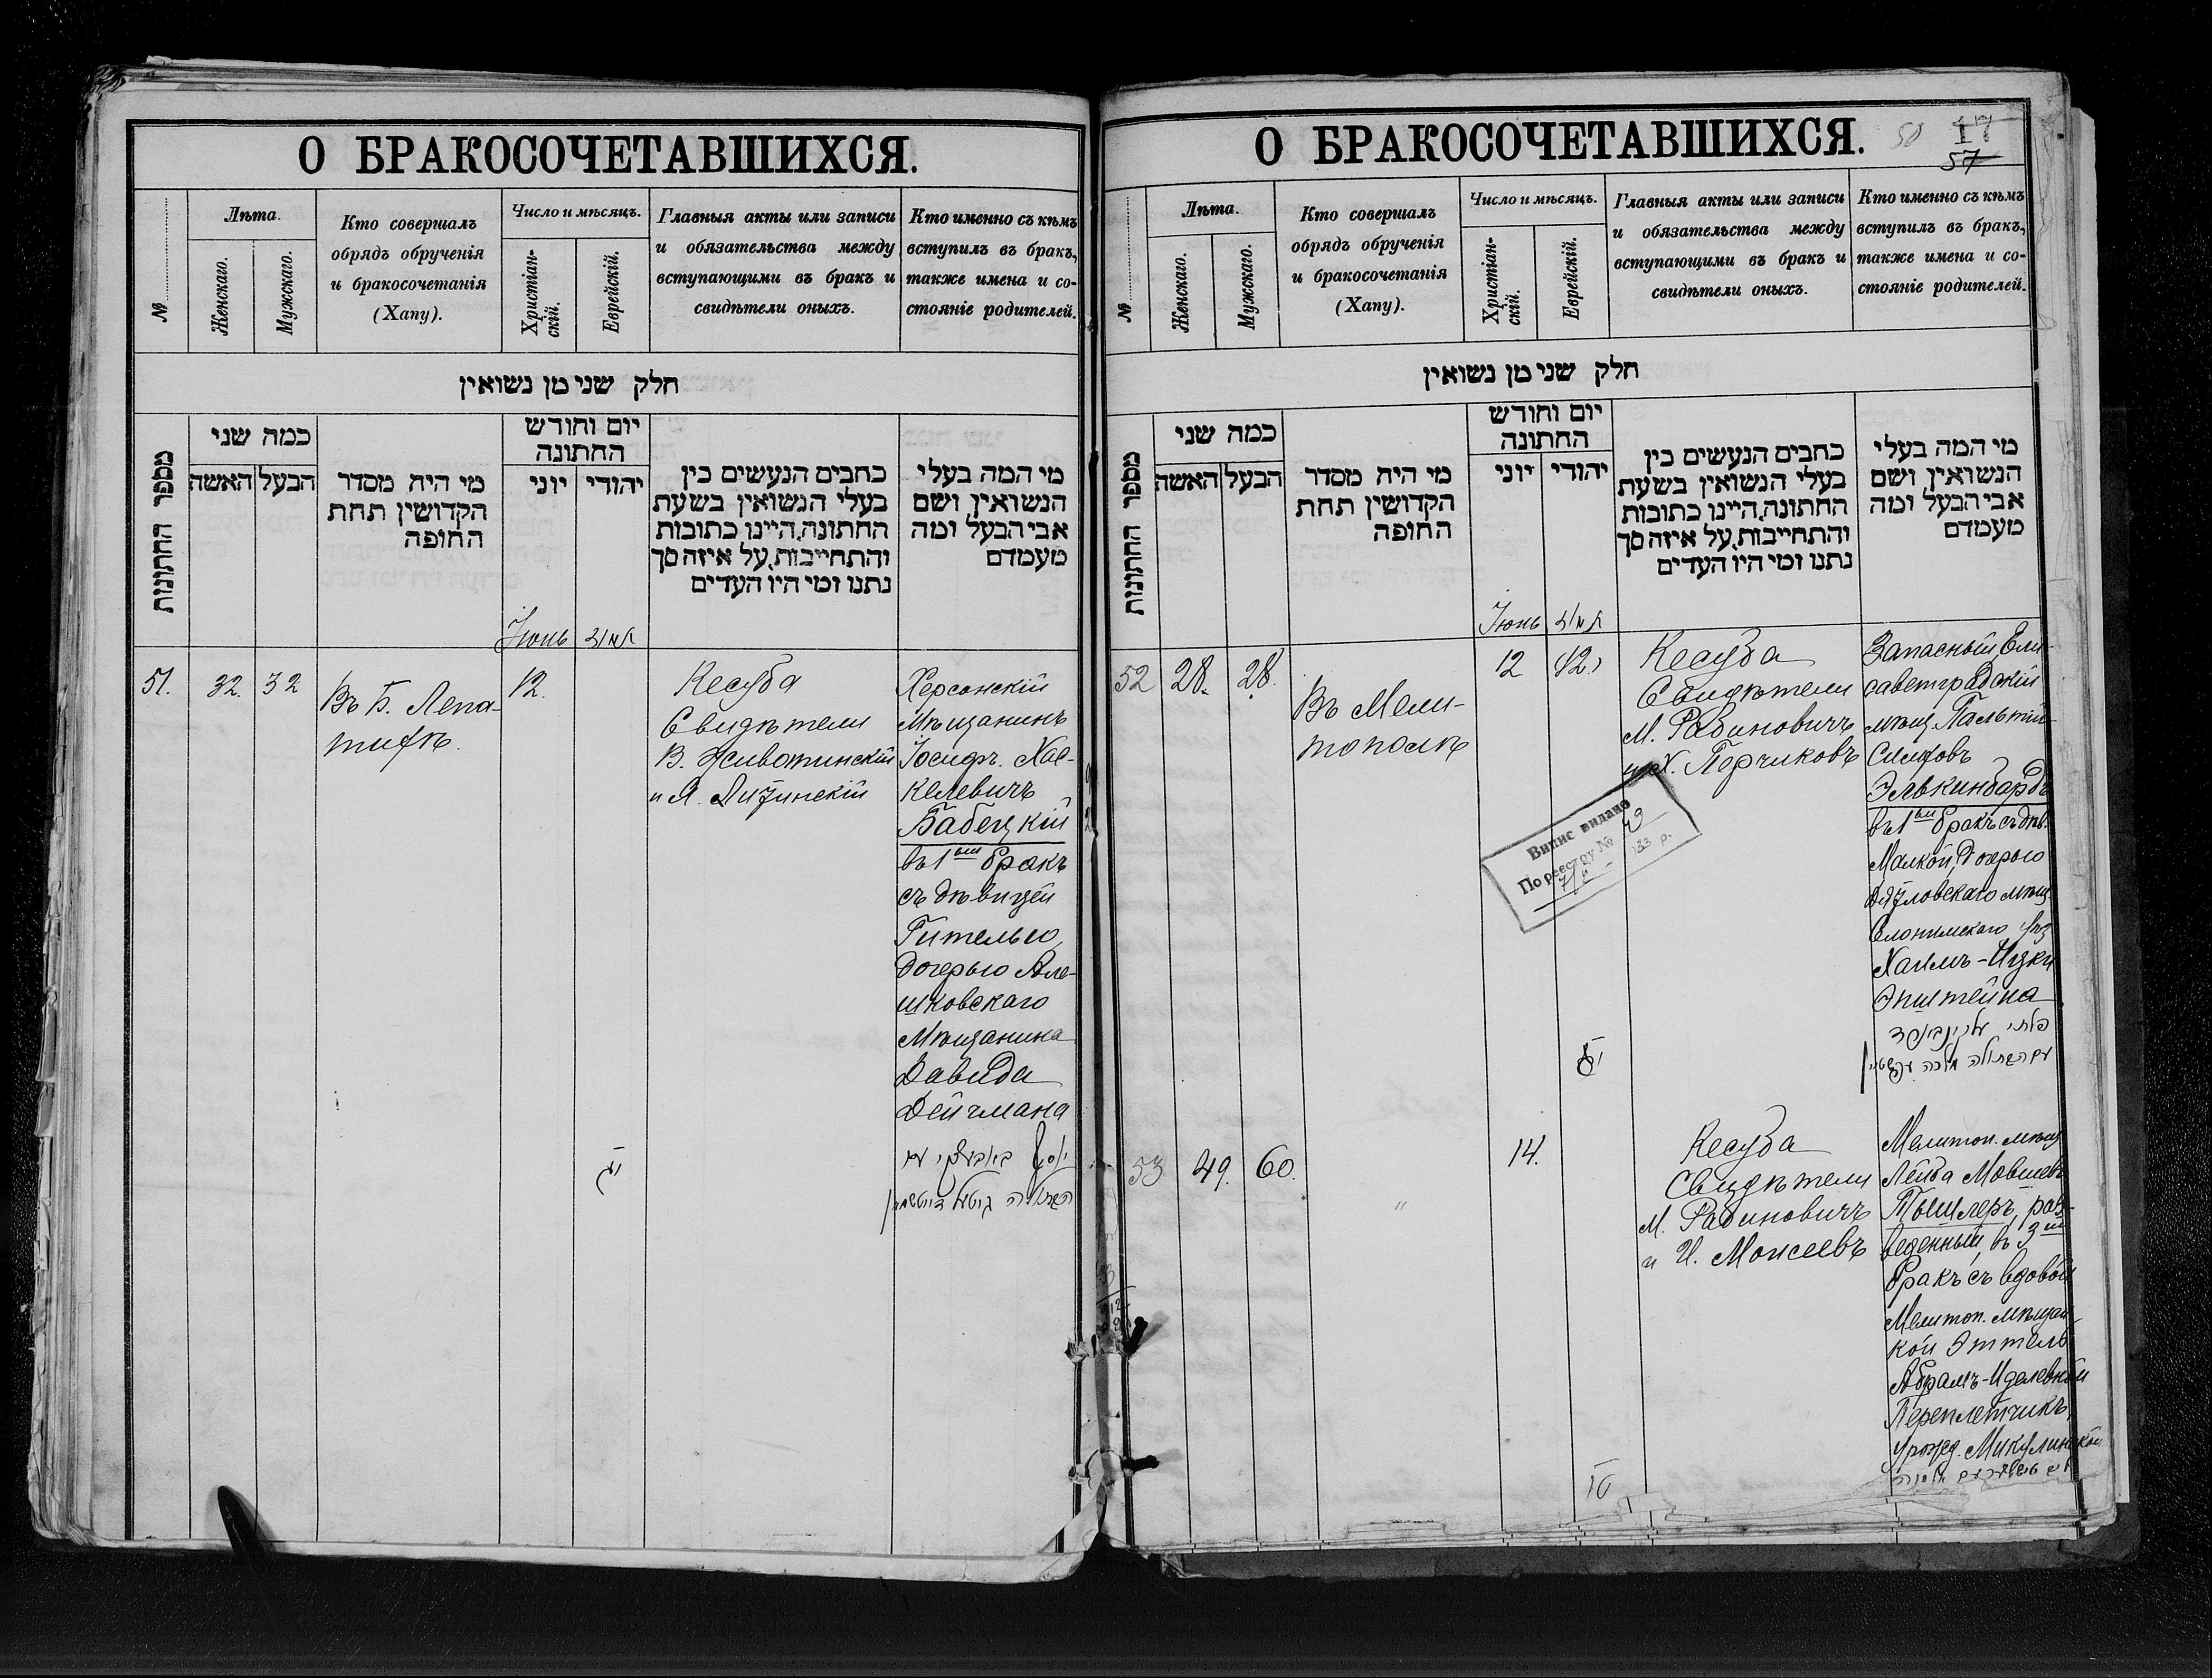 О БРАКОСОЧЕТАВШИХСЯ.
№
Лѣта.
Женскаго.
Мужскаго.
Кто совершалъ
обрядъ обрученія
и бракосочетанія
(Хапу).
Число и мѣсяцъ.
Христіан-
скій.
Еврейскій.
Главныя акты или записи
и обязательства между
вступающими въ бракъ и
свидѣтели оныхъ.
Кто именно съ кѣмъ
вступилъ въ бракъ,
также имена и со-
стояніе родителей.
חלק שני מן נשואין
מספר החתונות
כמה שני
האשה
הבעל
מי היה מסדר
הקדושין תחת
החופה
יום וחודש
החתונה
יוני
יהודי
כתבים הנעשים בין
בעלי הנשואין בשעת
החתונה, היינו כתובות
והתחייבות, על איזה סך
נתנו ומי היו העדים
מי המה בעלי
הנשואין ושם
אבי הבעל ומה
מעמדם
Іюнь
תמוז
51.
32.
32
Въ Б. Лепа-
тихѣ.
12.
יג
Кесуба
Свидѣтели
В. Животинскій
и Я. Лизинскій
Херсонскій
Мѣщанинъ
Іосифъ Хас-
келевичъ
Бабецкій
въ 1ый бракъ
съ дѣвицей
Гителью,
дочерью Але-
шковскаго
Мѣщанина
Давида
Дейчмана
יוסף באבעצקי עם
הבתולה גיטל דייטשמאן
О БРАКОСОЧЕТАВШИХСЯ.
50
17
57
№
Лѣта.
Женскаго.
Мужскаго.
Кто совершалъ
обрядъ обрученія
и бракосочетанія
(Хапу).
Число и мѣсяцъ.
Христіан-
скій.
Еврейскій.
Главныя акты или записи
и обязательства между
вступающими въ бракъ и
свидѣтели оныхъ.
Кто именно съ кѣмъ
вступилъ въ бракъ,
также имена и со-
стояніе родителей.
חלק שני מן נשואין
מספר החתונות
כמה שני
האשה
הבעל
מי היה מסדר
הקדושין תחת
החופה
יום וחודש
החתונה
יוני
יהודי
כתבים הנעשים בין
בעלי הנשואין בשעת
החתונה, היינו כתובות
והתחייבות, על איזה סך
נתנו ומי היו העדים
מי המה בעלי
הנשואין ושם
אבי הבעל ומה
מעמדם
Іюнь
תמוז
52
28.
28.
Въ Мели-
тополѣ
12
Кесуба
Свидѣтели
М. Рабиновичъ
и Х. Перчиковъ
Випис видано
По реестру №
Запасный Ели-
саветградскій
мѣщ. Пальтій
Элькинбардъ
въ 1ый бракъ съ дѣв.
Малкой, дочерью
Дятловскаго мѣщ.
Слонимскаго уѣз.
Хаимъ-Ицки
Эпштейна
עם הבתולה מלכה
53
49.
60.
"
14.
טו
Кесуба
Свидѣтели
М. Рабиновичъ
и И. Моисеевъ
Мелитоп. мѣщ.
Лейба Мовшевъ
Тышлеръ, раз-
веденный, въ 3ій
бракъ съ вдовой
Мелитоп. мѣщан-
кой Эттель
Абрамъ-Иделевной
Переплетчикъ,
урожд. Микулинской